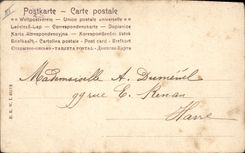 Postkarte – Carte postale
Weltpostverein – Union postale universelle
Levelező-Lap – Correspondenzkarte – Dopisnice
Karta korrespondencyjna – Korespondenční lístek
Briefkaart – Cartolina postale – Post card – Brefkort
TARJETA POSTAL
Mademoiselle A. Duménil
99 rue E. Renan
Havre